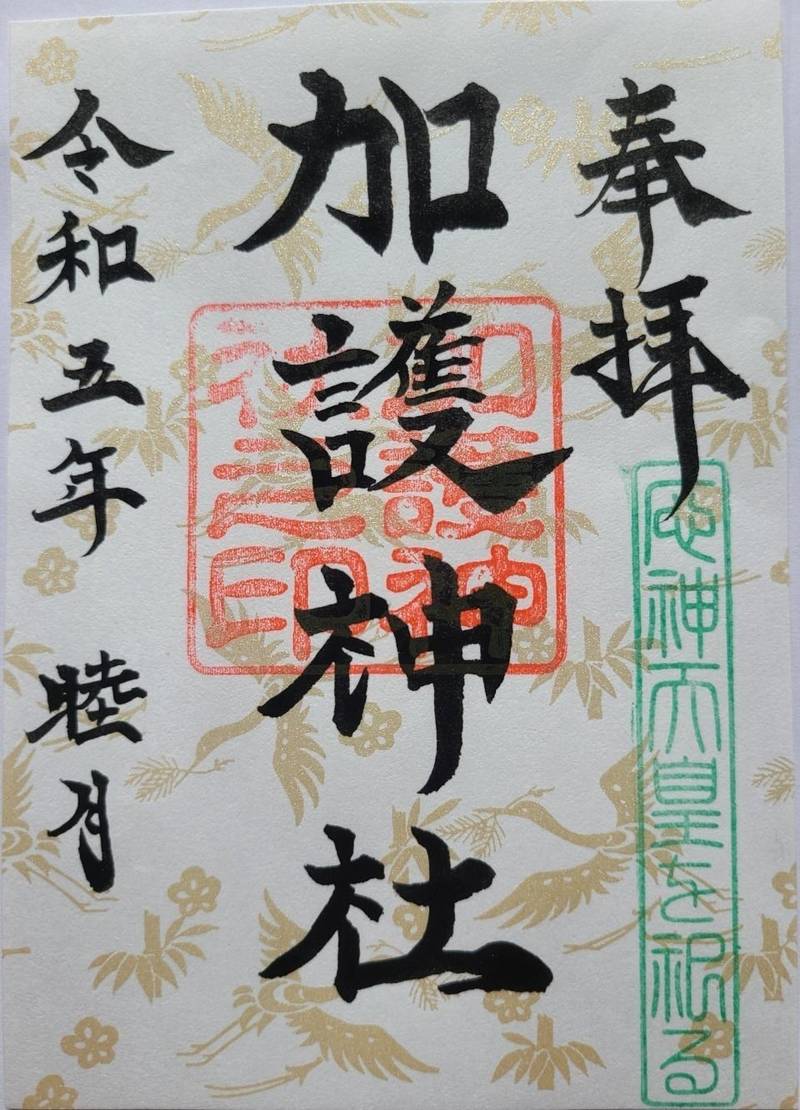 奉拝
応神天皇を祀る
加護神社
加護神
社之印
令和五年 睦月